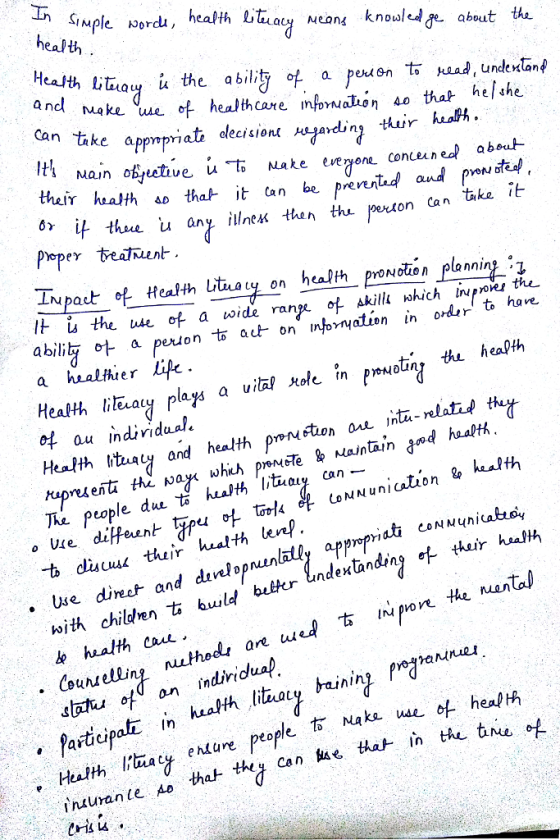 In simple words, health literacy means knowledge about the
health.
Health literacy is the ability of a person to read, understand
and make use of healthcare information so that he/she
can take appropriate decisions regarding their health.
It's main objective is to make everyone concerned about
their health so that it can be prevented and promoted,
or if there is any illness then the person can take it
proper treatment.
Impact of Health Literacy on health promotion planning :-
It is the use of a wide range of skills which improves the
ability of a person to act on information in order to have
a healthier life.
Health literacy plays a vital role in promoting the health
of an individual.
Health literacy and health promotion are inter-related they
represents the ways which promote & maintain good health.
The people due to health literacy can —
• Use different types of tools of communication & health
to discuss their health level.
• Use direct and developmentally appropriate communication
with children to build better understanding of their health
& health care.
• Counselling methods are used to improve the mental
status of an individual.
• Participate in health literacy training programmes.
• Health literacy ensure people to make use of health
insurance so that they can use that in the time of
crisis.